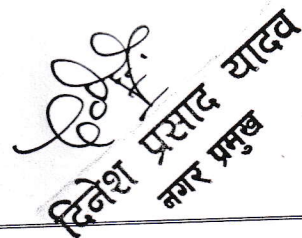 दिनेश प्रसाद यादव
नगर प्रमुख